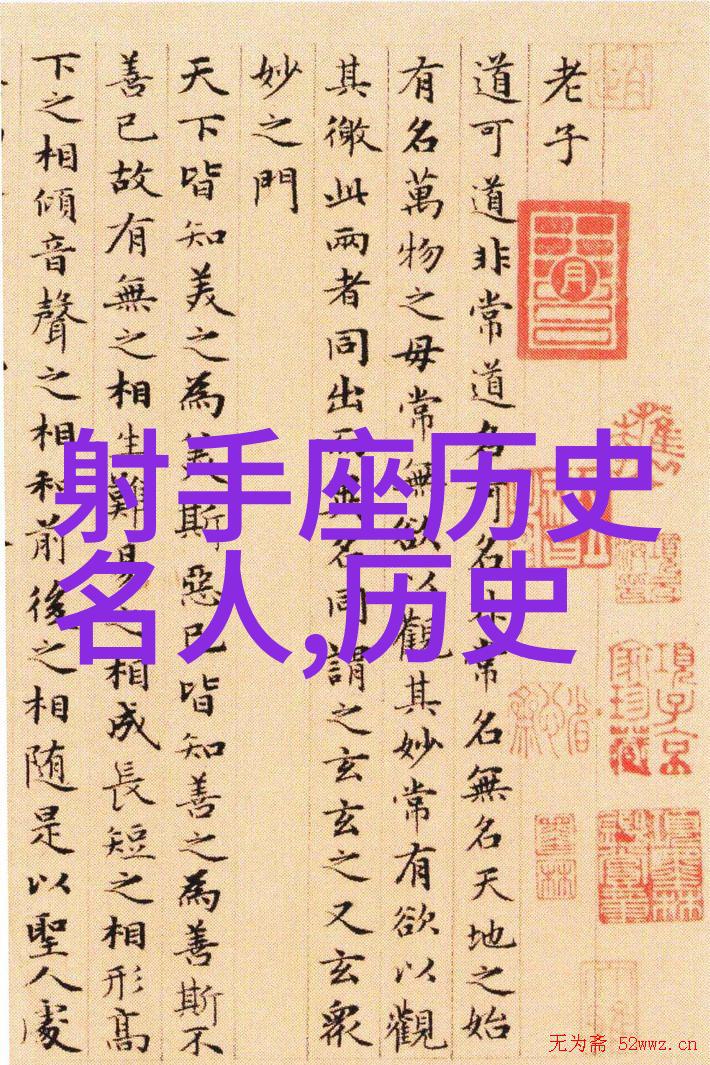 老子
道可道非常道名可名非常名無名天地之始
有名萬物之母常無欲以觀其妙常有欲以觀
其徼此兩者同出而異名同謂之玄玄之又玄衆
妙之門
天下皆知美之為美斯惡已皆知善之為善斯不
善已故有無之相生難易之相成長短之相形高
下之相傾音聲之相和前後之相随是以聖人處
射手座历史
名人,历史
項子京
家珍藏
无为斋 52wwz.cn